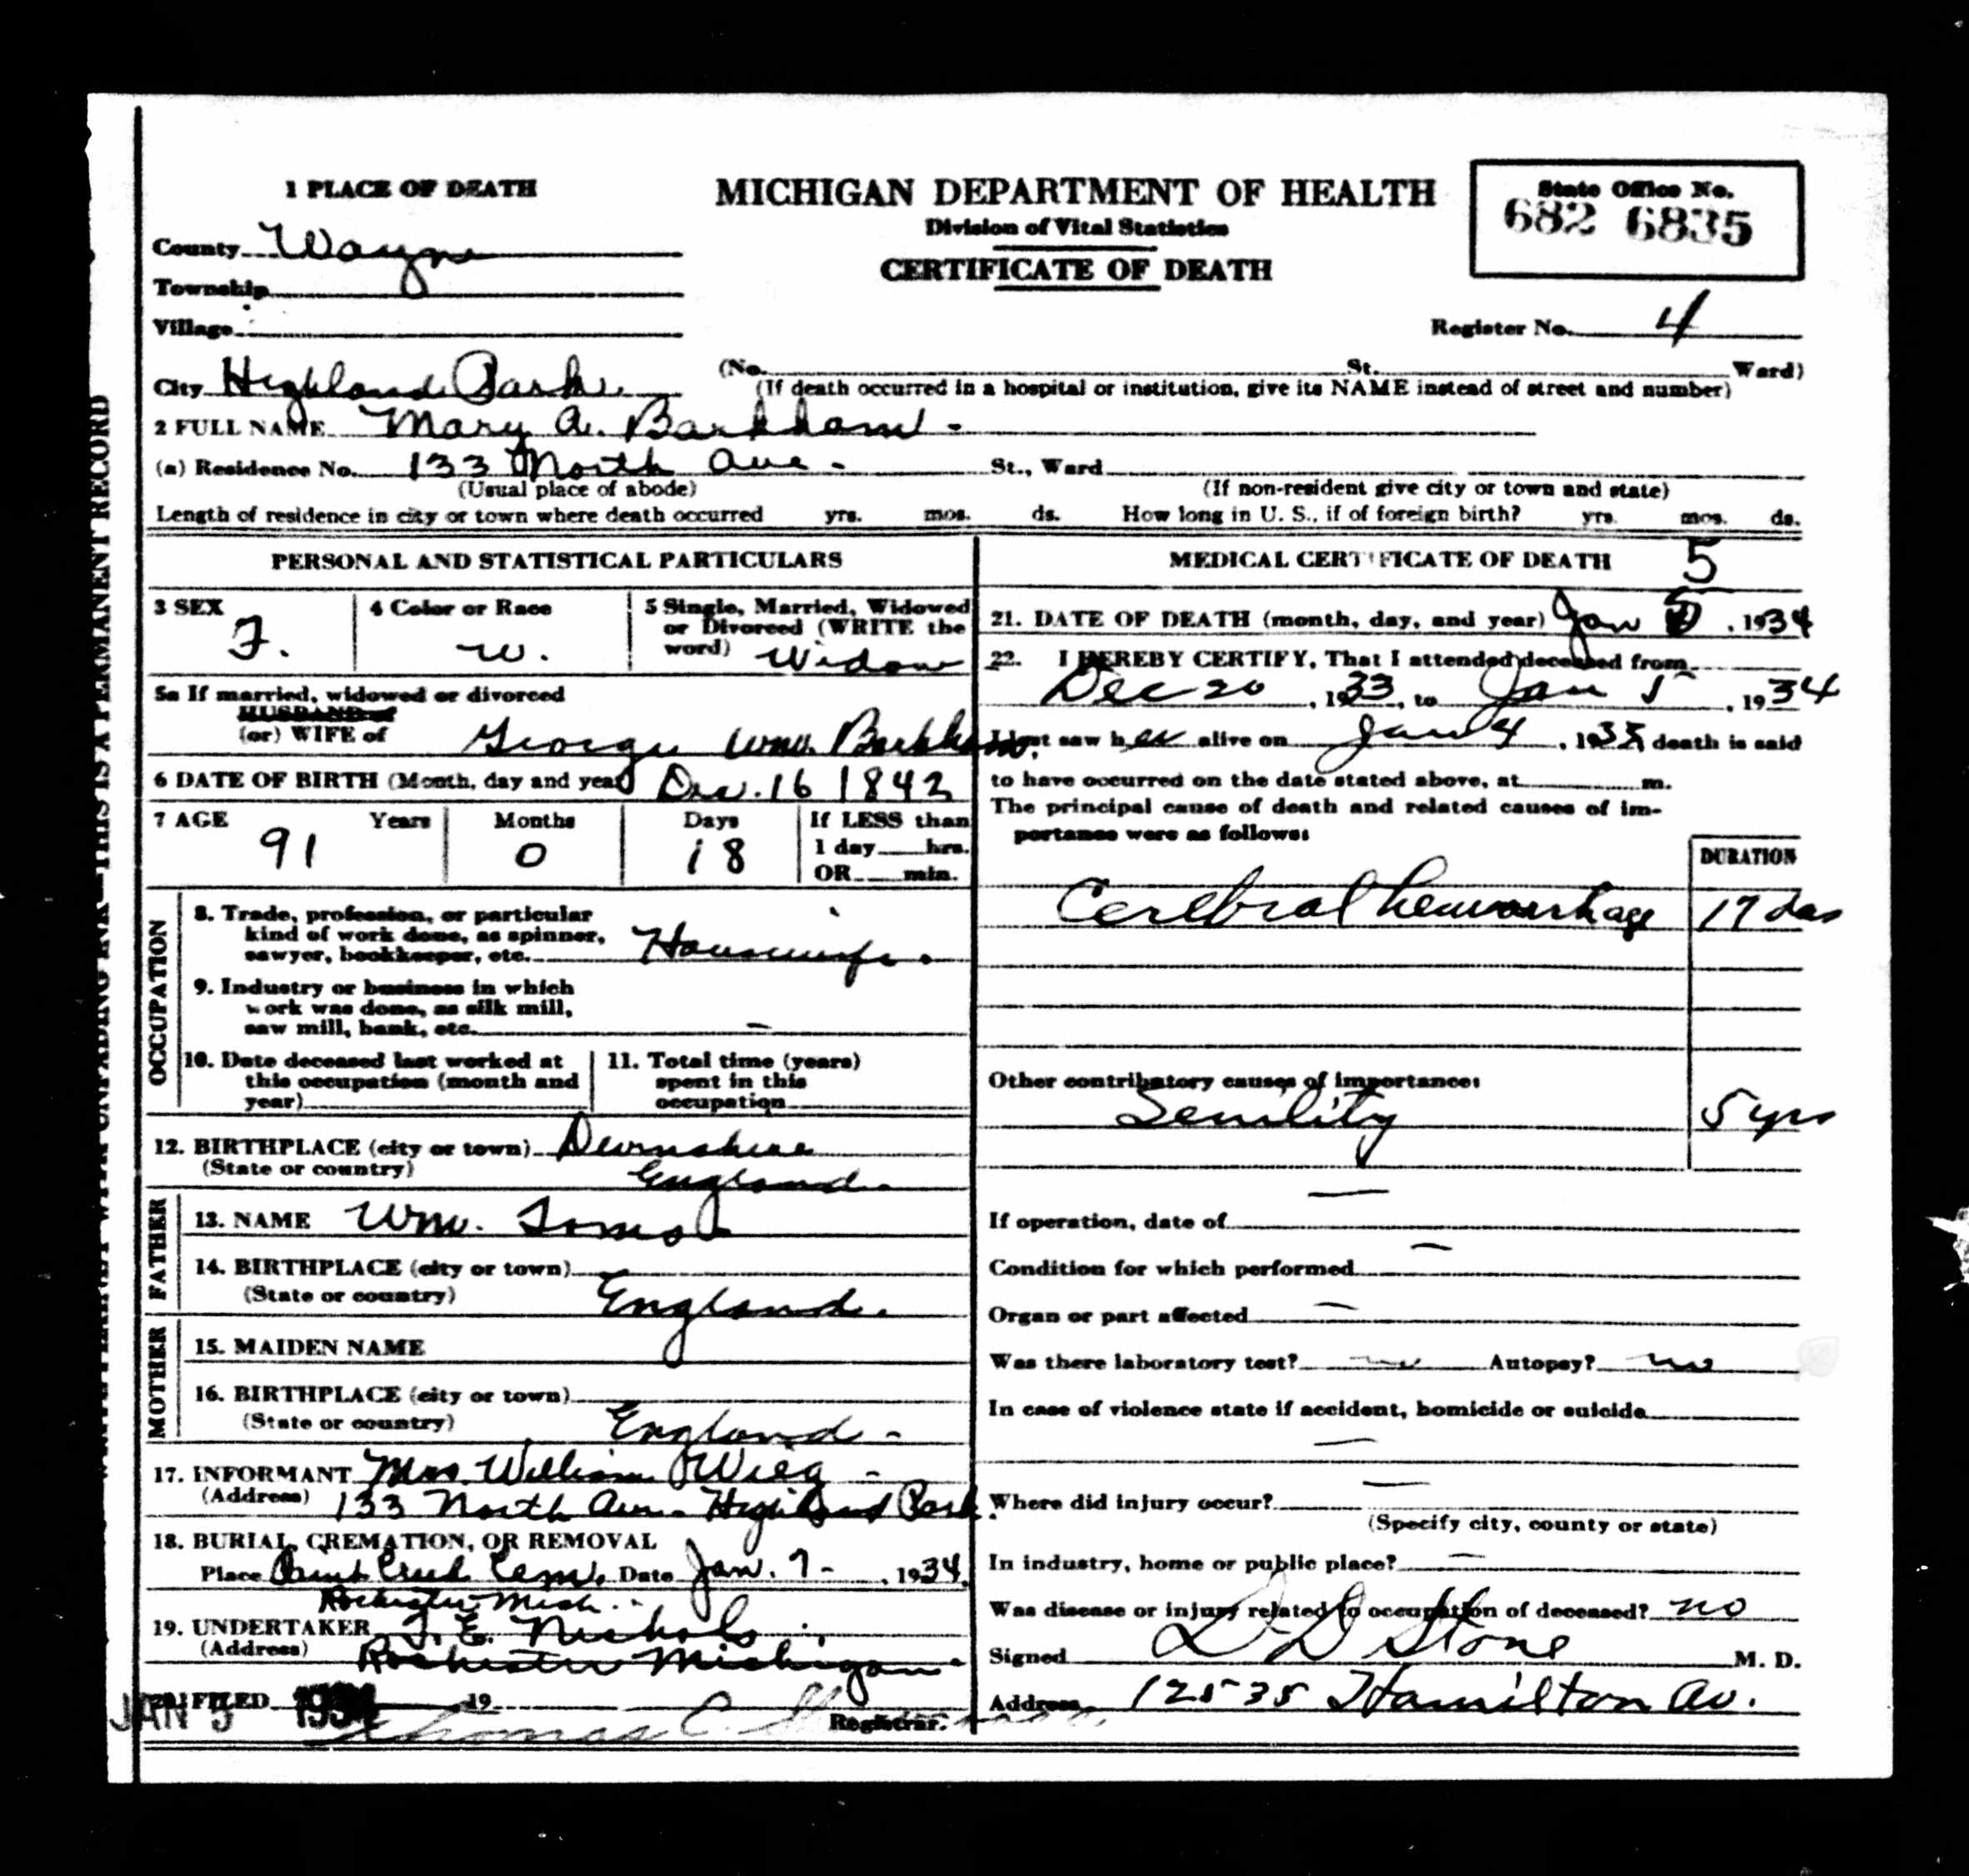 1 PLACE OF DEATH
MICHIGAN DEPARTMENT OF HEALTH
Division of Vital Statistics
CERTIFICATE OF DEATH
State Office No.
682 6835
County Wayne
Township
Village
Register No. 4
City Highland Park
(No. St. Ward)
(If death occurred in a hospital or institution, give its NAME instead of street and number)
2 FULL NAME Mary A. Barkham -
(a) Residence No. 133 North Ave - St., Ward
(Usual place of abode) (If non-resident give city or town and state)
Length of residence in city or town where death occurred yrs. mos. ds. How long in U. S., if of foreign birth? yrs. mos. ds.
THIS IS A PERMANENT RECORD
PERSONAL AND STATISTICAL PARTICULARS
3 SEX
F.
4 Color or Race
W.
5 Single, Married, Widowed
or Divorced (WRITE the
word) Widow
5a If married, widowed or divorced
HUSBAND of
(or) WIFE of George Wm. Barkham
6 DATE OF BIRTH (Month, day and year) Dec. 16 1842
7 AGE Years Months Days If LESS than
91 0 18 1 day hrs.
OR min.
OCCUPATION
8. Trade, profession, or particular
kind of work done, as spinner,
sawyer, bookkeeper, etc. Housewife.
9. Industry or business in which
work was done, as silk mill,
saw mill, bank, etc. -
10. Date deceased last worked at
this occupation (month and
year)
11. Total time (years)
spent in this
occupation
12. BIRTHPLACE (city or town) Devonshire
(State or country) England.
FATHER
13. NAME Wm. Toms
14. BIRTHPLACE (city or town)
(State or country) England.
MOTHER
15. MAIDEN NAME
16. BIRTHPLACE (city or town)
(State or country) England -
17. INFORMANT Mrs. William Wieg -
(Address) 133 North Ave. Highland Park.
18. BURIAL, CREMATION, OR REMOVAL
Place Paint Creek Cem. Date Jan. 7 - , 1934.
Rochester Mich.
19. UNDERTAKER T. E. Nichols
(Address) Rochester Michigan
20. FILED JAN 5 1934 19
Thomas C. Registrar.
MEDICAL CERTIFICATE OF DEATH
5
21. DATE OF DEATH (month, day, and year) Jan 5, 1934
22. I HEREBY CERTIFY, That I attended deceased from
Dec 20, 1933, to Jan 5, 1934
I last saw her alive on Jan 4, 193 death is said
to have occurred on the date stated above, at m.
The principal cause of death and related causes of im-
portance were as follows:
DURATION
Cerebral hemorrhage 17 das
Other contributory causes of importance:
Senility 5 yrs
If operation, date of -
Condition for which performed -
Organ or part affected -
Was there laboratory test? no Autopsy? no
In case of violence state if accident, homicide or suicide
-
Where did injury occur? -
(Specify city, county or state)
In industry, home or public place? -
Was disease or injury related to occupation of deceased? no
Signed D D Stone M. D.
Address 12535 Hamilton Av.